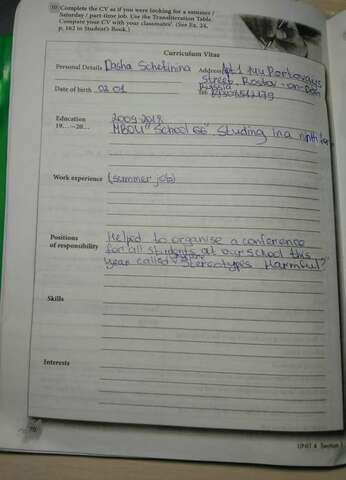 10 Complete the CV as if you were looking for a summer /
Saturday / part-time job. Use the Transliteration Table.
Compare your CV with your classmates'. (See Ex. 24,
p. 162 in Student's Book.)
Curriculum Vitae
Personal Details Dasha Schetinina Address
Street, Rostov-on-Don
Russia
Date of birth 02 01 Tel.
Education 2009 2018
19...–20... MBOU "School 66" Studing in a
Work experience (summer job)
Positions Helped to organise a conference
of responsibility for all students at our school this
year called Stereotypes Harmful?
Skills
Interests
70
UNIT 4 Section